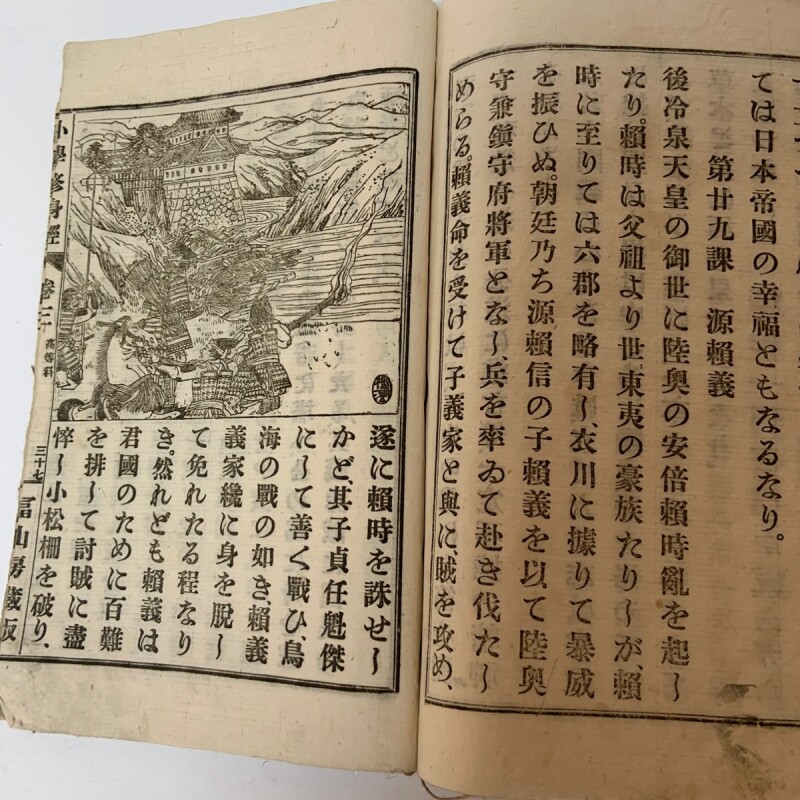 ては日本帝國の幸福ともなるなり。
第廿九課 源賴義
後冷泉天皇の御世に陸奥の安倍賴時亂を起し
たり。賴時は父祖より世〻東夷の豪族たりしが、賴
時に至りては六郡を略有し、衣川に據りて暴威
を振ひぬ。朝廷乃ち源賴信の子賴義を以て陸奥
守兼鎭守府將軍となし、兵を率ゐて赴き伐たし
めらる。賴義命を受けて子義家と與に、賊を攻め、
遂に賴時を誅せし
かど、其子貞任魁傑
にして善く戰ひ、鳥
海の戰の如き、賴義
義家纔に身を脱し
て免れたる程なり
き。然れども賴義は
君國のために百難
を排して討賊に盡
悴し小松柵を破り、
小學修身經 卷二 高等科 三十七 冨山房藏版